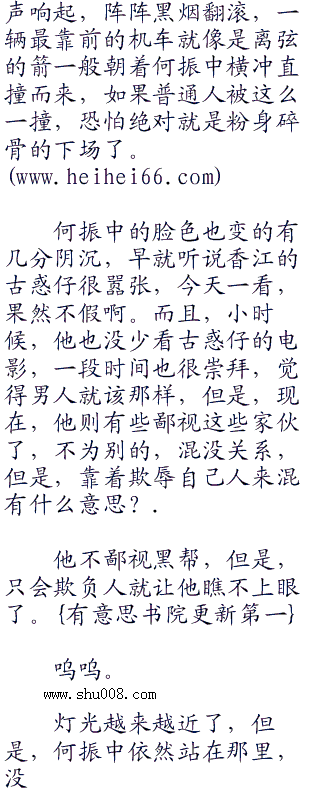 声响起，阵阵黑烟翻滚，一
辆最靠前的机车就像是离弦
的箭一般朝着何振中横冲直
撞而来，如果普通人被这么
一撞，恐怕绝对就是粉身碎
骨的下场了。
(www.heihei66.com)
何振中的脸色也变的有
几分阴沉，早就听说香江的
古惑仔很嚣张，今天一看，
果然不假啊。而且，小时
候，他也没少看古惑仔的电
影，一段时间也很崇拜，觉
得男人就该那样，但是，现
在，他则有些鄙视这些家伙
了，不为别的，混没关系，
但是，靠着欺辱自己人来混
有什么意思？.
他不鄙视黑帮，但是，
只会欺负人就让他瞧不上眼
了。{有意思书院更新第一}
呜呜。
www.shu008.com
灯光越来越近了，但
是，何振中依然站在那里，
没